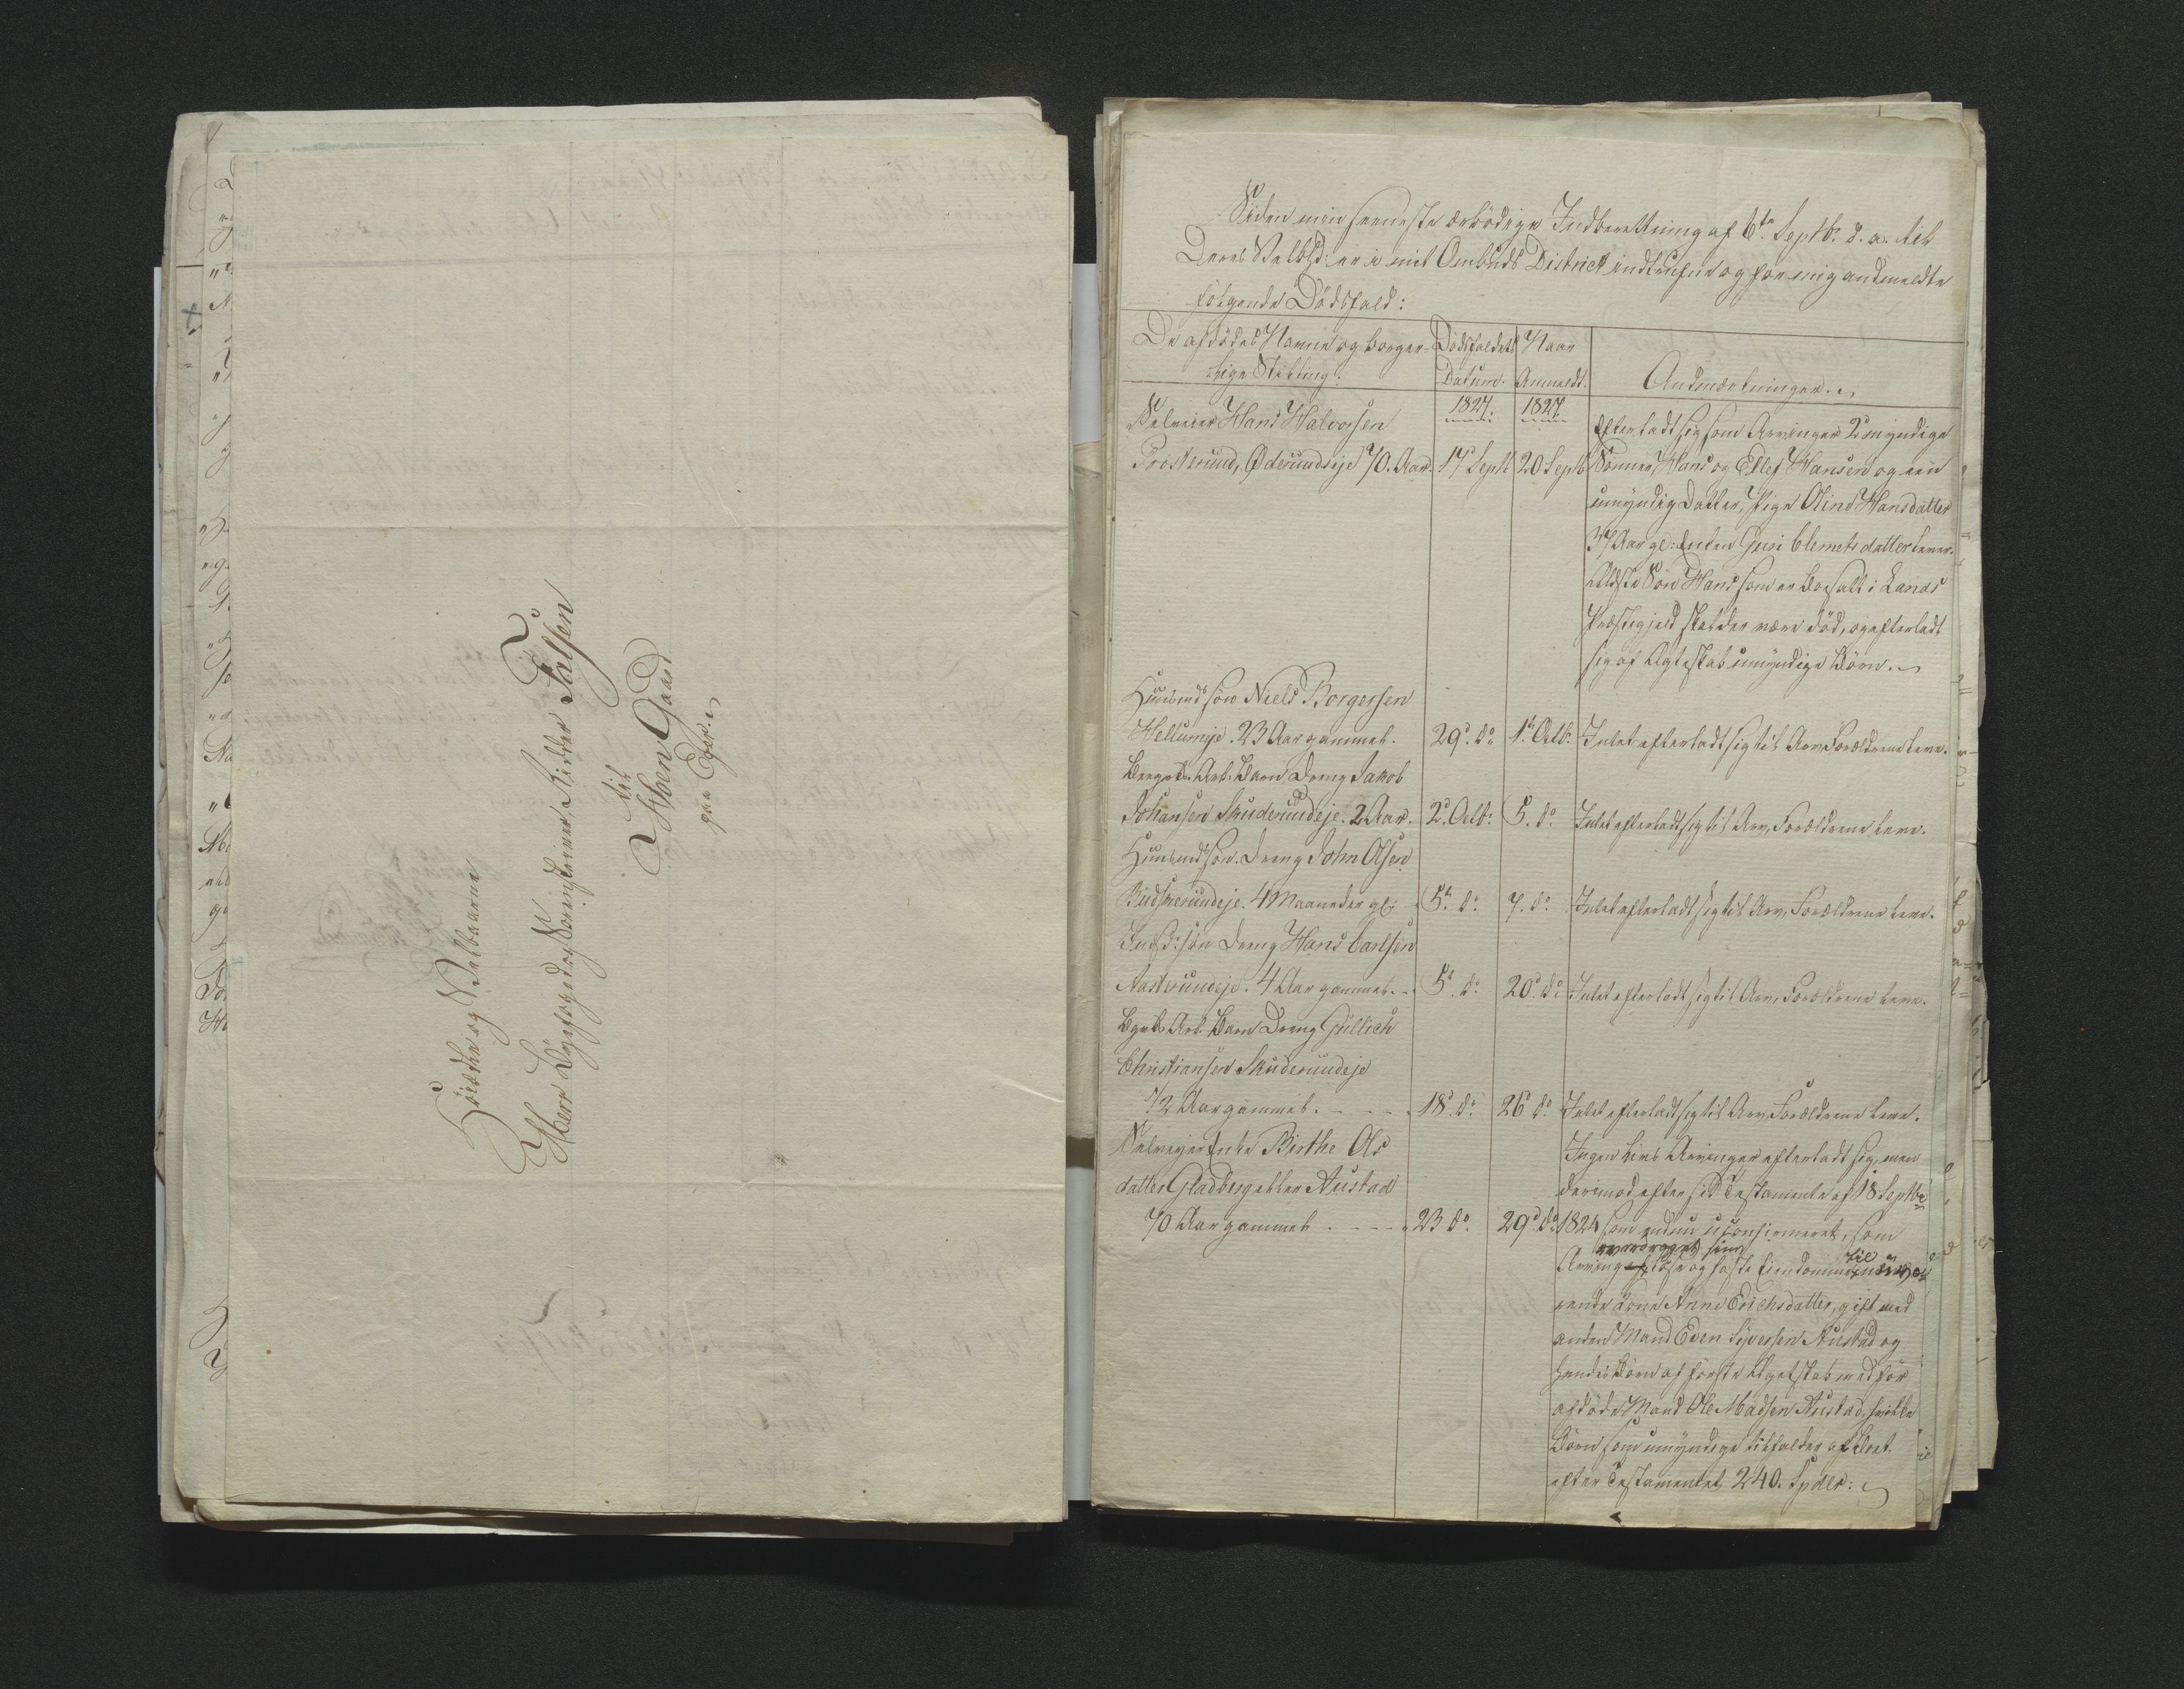 Høiædle og Velbaarne
Herr Byefoged og Sorenskriver, Ridder Falsen
til
Hoen Gaard
paa Eger.
Siden min seeneste ærbödige Indberettning af 6te Septbr. d. a. til
Deres Velbhd: er i mit Ombuds District indtrufne og for mig andmeldte
følgende Dödsfald:
De afdödes Navne og borger-
lige Stilling.
Dödsfaldets
Datum.
Naar
Anmeldt.
Andmærkninger.
1827.
1827.
Selveier Hans Halvorsen
Proskerud, Öderudseje 70. Aar.
17d Septb
20 Septb
Efterladt sig som Arvinger 2 myndige
Sönner Hans og Ellef Hansen og een
umyndig Datter, Pige Oline Hansdatter
37 Aar gl: Enken Guri Clemetsdatter lever.
Ældste Sön Hans som er bosatt i Lands
Præstegjeld skal der være död, og efterladt
sig af Ægteskab umyndige Börn.
Huusmdsön Niels Borgersen
Hellumeje. 23 Aar gammel.
29d. do.
1te. Octb.
Intet efterladt sig til Arv, Forældrene leve.
Bergv. Arb. Barn Dreng Jakob
Johansen Skuderudeje. 2 Aar.
2d. Octb.
5. do.
Intet efterladt sig til Arv, Forældrene leve.
Huusmdsön. Dreng John Olsen
Budskerudeje. 4 Maaneder gl:
5te. do.
7. do.
Intet efterladt sig til Arv, Forældrene leve.
Indstsön Dreng Hans Carlsen
Aaskerudeje. 4 Aar gammel.
5te. do.
20d. do.
Intet efterladt sig til Arv, Forældrene leve.
Bgvk Arb Barn Dreng Gullich
Christiansen Skuderudeje
1/2 Aar gammel.
18d. do.
26 do.
Intet efterladt sig til Arv, Forældrene leve.
Selvejer Enke Birthe Ols
datter Gladberg eller Austad
70 Aar gammel.
23 do.
29d do
Ingen Livs Arvinger efterladt sig, men
derimod efter sid Testamente af 18 Septbr
1824 som endnu uconfirmeret, som
overdraget sine
Arving löse og faste Eiendomme til nuvæ
rende Kone Anne Erichsdatter, gift med
anden Mand Eden Syversen Austad og
hendes Börn af förste Ægteskab med for
afdöde Mand Ole Madsen Austad, hvilke
Börn som umyndige tilfalder af Boet
efter Testamentet 240. Spdlr: